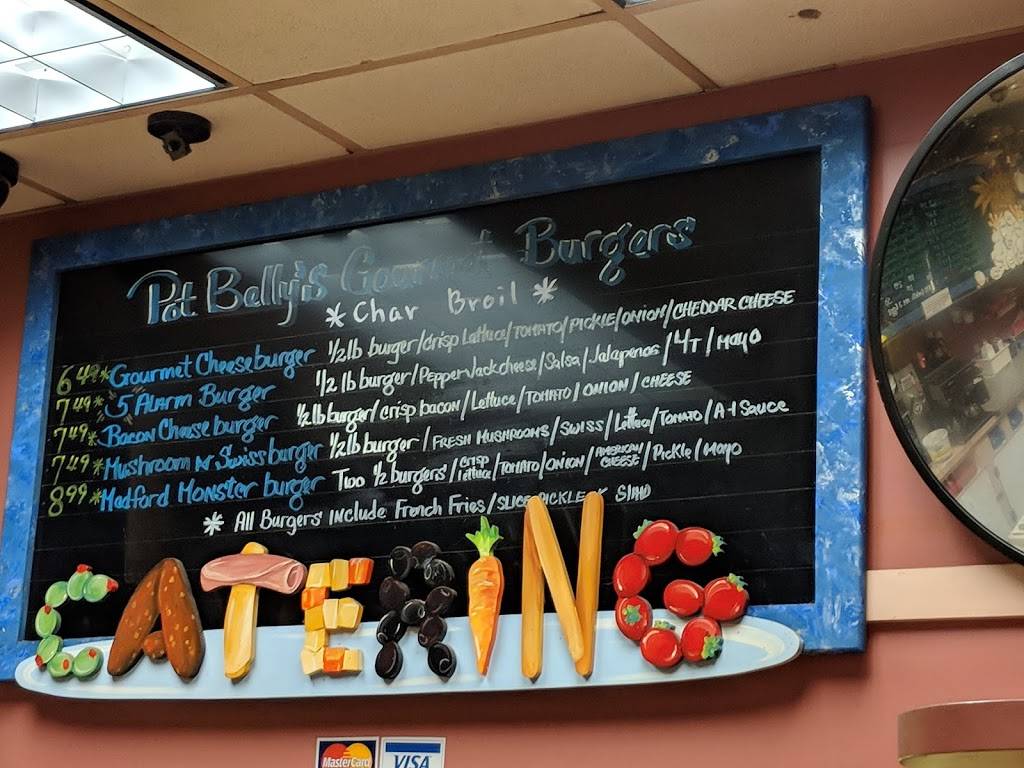 Pot Belly's Gourmet Burgers
* Char Broil *
6.49 * Gourmet Cheeseburger 1/2 lb burger / crisp Lettuce / TOMATO / PICKLE / ONION / CHEDDAR CHEESE
7.49 * 5 ALARM Burger 1/2 lb burger / Pepper Jack cheese / Salsa / Jalapenos / L/T / MAYO
7.49 * Bacon Cheese burger 1/2 lb burger / crisp bacon / Lettuce / TOMATO / ONION / CHEESE
7.49 * Mushroom & Swiss burger 1/2 lb burger / FRESH MUSHROOMS / SWISS / Lettuce / TOMATO / A-1 Sauce
8.99 * Medford Monster burger Two 1/2 burgers / CRISP Lettuce / TOMATO / ONION / AMERICAN CHEESE / Pickle / Mayo
* All Burgers Include French Fries / SLICE PICKLE
CATERING
MasterCard
VISA